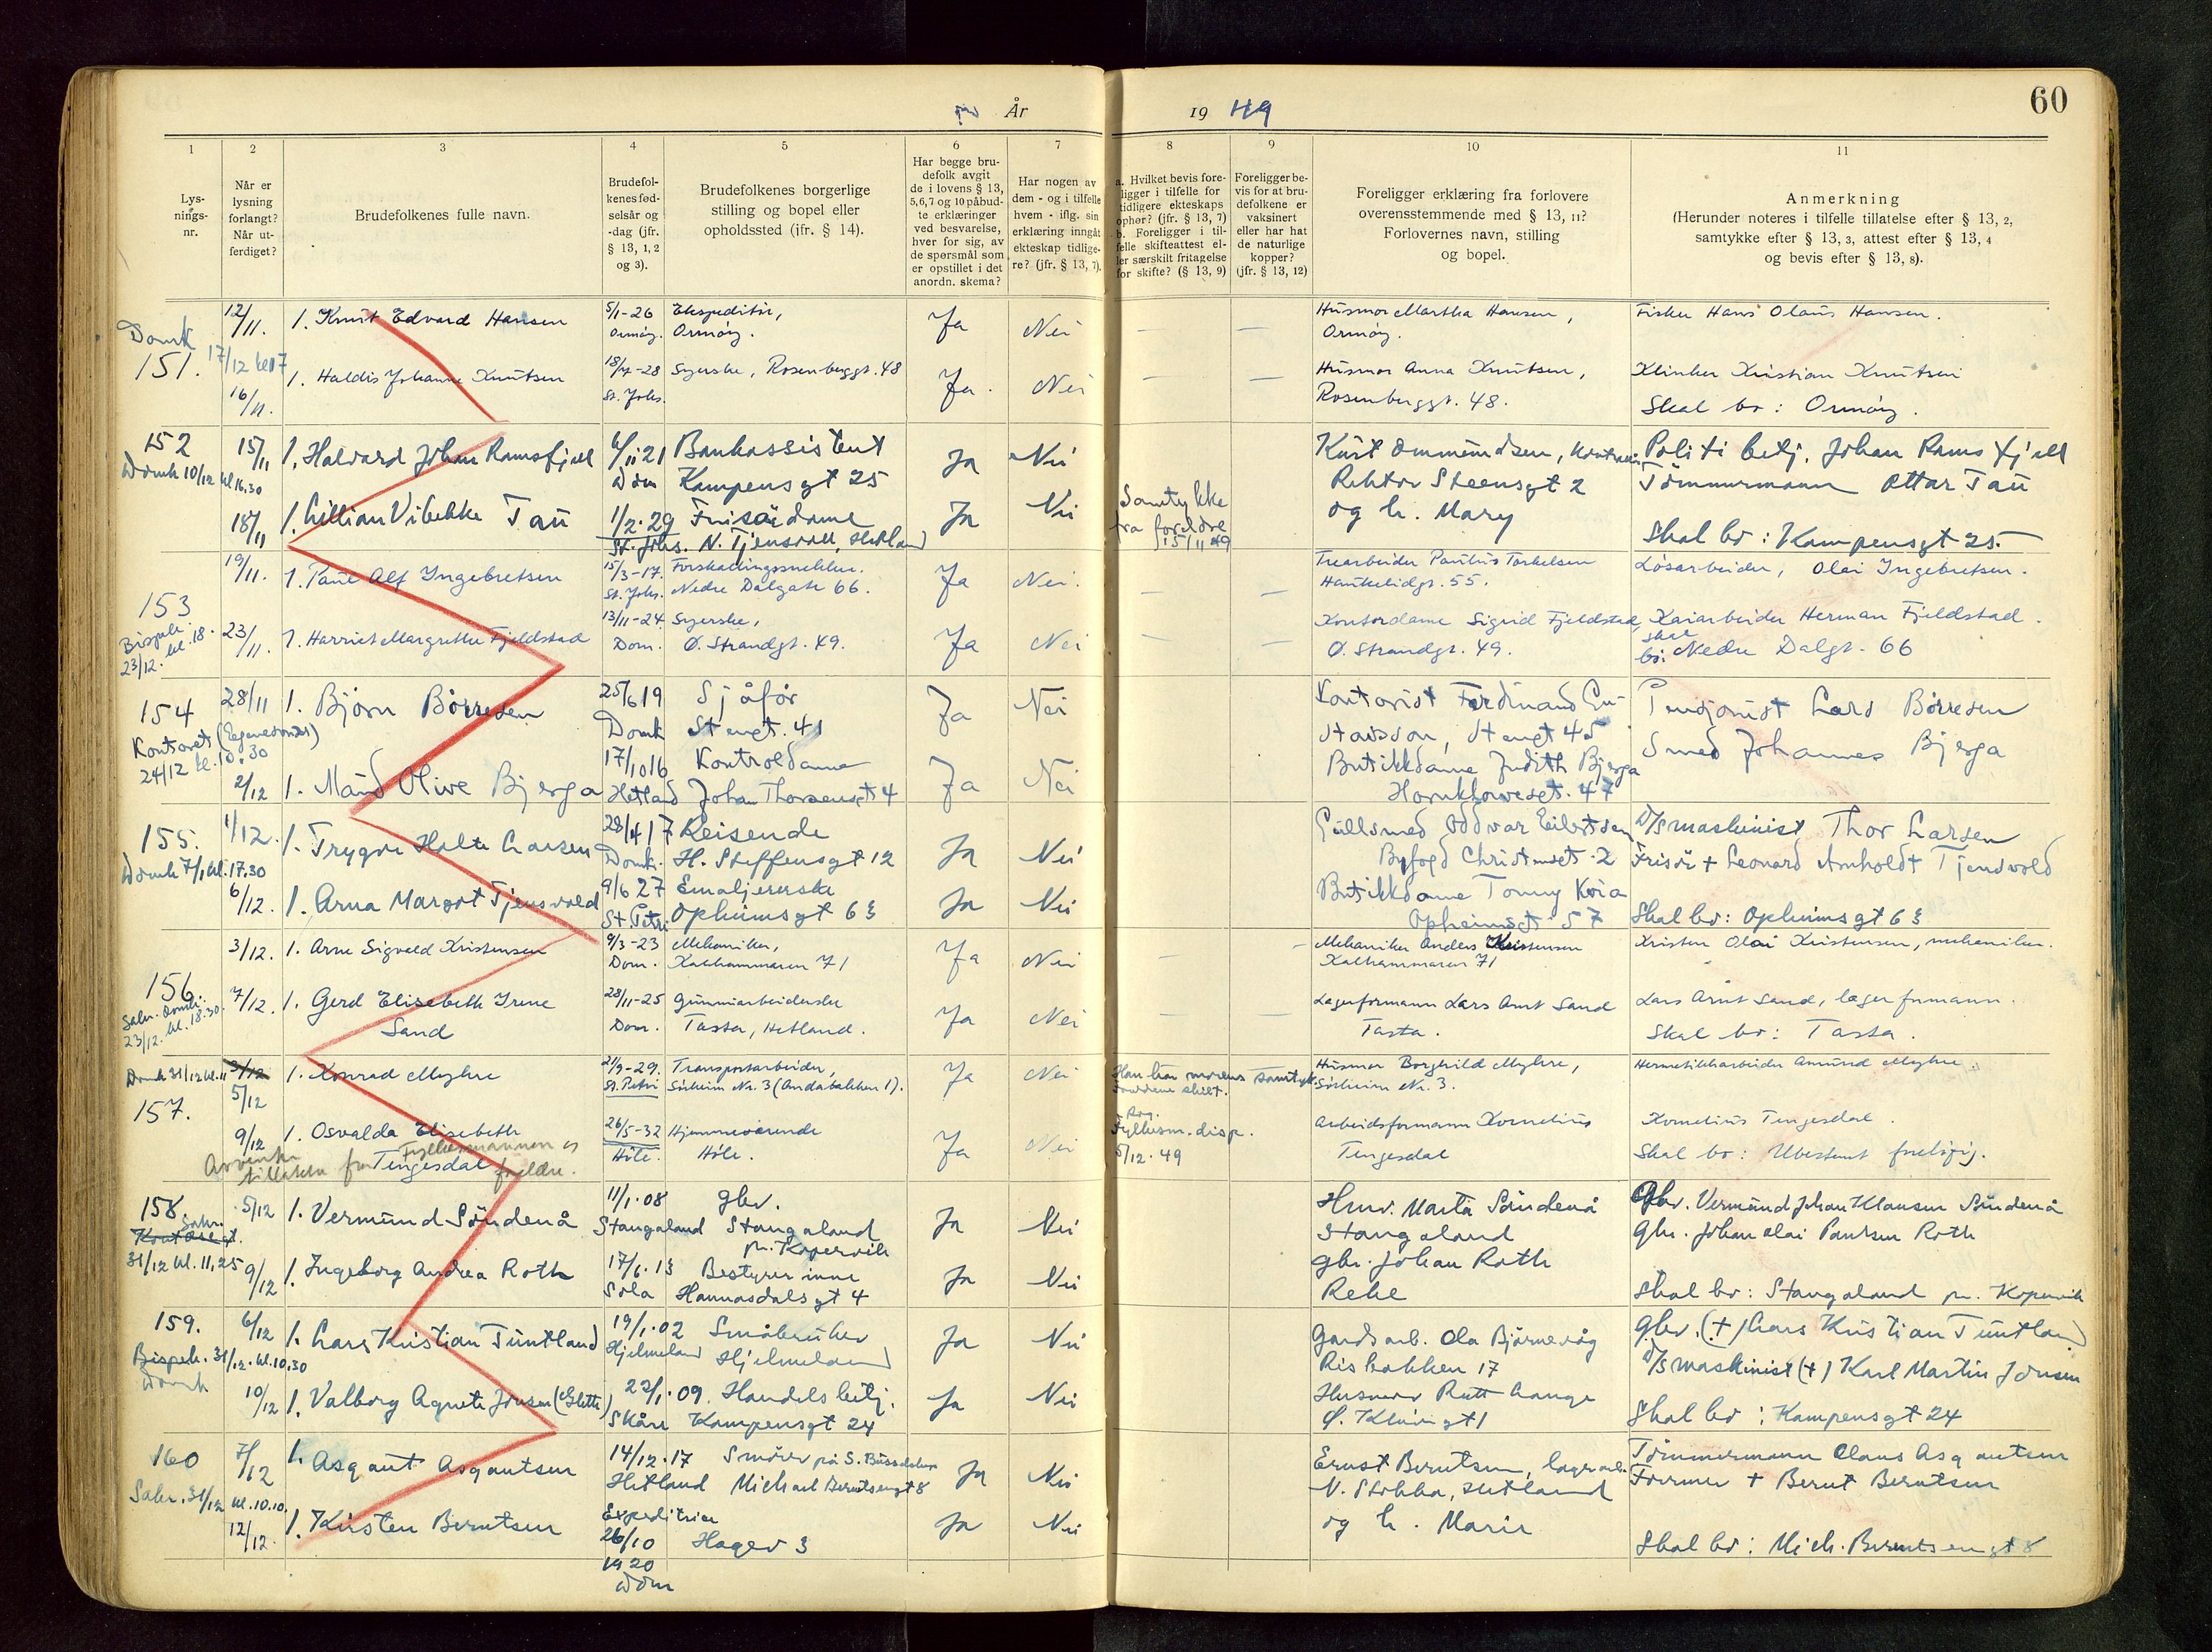 År
19 49
60
1
2
3
4
5
6
7
8
9
10
11
Lys-
nings-
nr.
Når er
lysning
forlangt?
Når ut-
ferdiget?
Brudefolkenes fulle navn.
Brudefol-
kenes fød-
selsår og
-dag (jfr.
§ 13, 1, 2
og 3).
Brudefolkenes borgerlige
stilling og bopel eller
opholdssted (jfr. § 14).
Har begge bru-
defolk avgit
de i lovens § 13,
5,6,7 og 10 påbud-
te erklæringer
ved besvarelse,
hver for sig, av
de spørsmål som
er opstillet i det
anordn. skema?
Har nogen av
dem - og i tilfelle
hvem - iflg. sin
erklæring inngåt
ekteskap tidlige-
re? (jfr. § 13, 7).
a. Hvilket bevis fore-
ligger i tilfelle for
tidligere ekteskaps
ophør? (jfr. § 13, 7)
b. Foreligger i til-
felle skifteattest el-
ler særskilt fritagelse
for skifte? (§ 13, 9)
Foreligger be-
vis for at bru-
defolkene er
vaksinert
eller har hat
de naturlige
kopper?
(jfr. § 13, 12)
Foreligger erklæring fra forlovere
overensstemmende med § 13, 11?
Forlovernes navn, stilling
og bopel.
Anmerkning
(Herunder noteres i tilfelle tillatelse efter § 13, 2,
samtykke efter § 13, 3, attest efter § 13, 4
og bevis efter § 13, 8).
Domk
151.
12/11.
17/12 kl 17
16/11.
1. Knut Edvard Hansen
5/1-26
Ormøy.
Ekspeditør,
Ormøy.
Ja
Nei
—
—
Husmor Martha Hansen,
Ormøy.
Fisker Hans Olaus Hansen.
1. Haldis Johanne Knutsen
18/7-28
St. Johs.
Syerske, Rosenberggt. 48
Ja.
Nei
—
—
Husmor Anna Knutsen,
Rosenberggt. 48.
Klinker Kristian Knutsen
Skal bo: Ormøy.
152
Domk 10/12 kl 16.30
15/11
18/11
1. Halvard Johan Ramsfjell
6/11 21
Dom
Bankassistent
Kampensgt 25
Ja
Nei
Kurt Ommundsen,
Rektor Steensgt 2
og h. Mary
Politibetj. Johan Ramsfjell
1. Lillian Vibekke Tau
1/2.29
St. Johs.
Frisørdame
N. Tjensvoll, Hetland
Ja
Nei
Samtykke
fra foreldre
15/11 49
Tømmermann Ottar Tau
Skal bo: Kampensgt 25.
153
Bispek.
23/12. kl. 18.
19/11.
23/11.
1. Paul Alf Ingebretsen
15/3-17.
St. Johs.
Forskallingssnekker.
Nedre Dalgate 66.
Ja
Nei.
—
—
Trearbeider Paulus Torkelsen
Haukelidgt. 55.
Løsarbeider, Olai Ingebretsen.
1. Harriet Margrethe Fjeldstad
13/11-24
Dom.
Syerske,
Ø. Strandgt. 49.
Ja
Nei
—
—
Kontordame Sigrid Fjeldstad,
Ø. Strandgt. 49.
Kaiarbeider Herman Fjeldstad.
skal
bo: Nedre Dalgt. 66
154
Kontoret (Egenesontzs)
24/12 kl. 10.30
28/11
2/12
1. Bjørn Børresen
25/6 19
Domk
Sjåfør
Stengt. 41
Ja
Nei
Kontorist Ferdinand Gu-
stavsson, Stengt 45
Pensjonist Lars Børresen
1. Maud Olive Bjerga
17/10 16
Hetland
Kontroldame
Johan Thorsensgt 4
Ja
Nei
Butikkdame Judith Bjerga
Hornklovesgt. 47
Smed Johannes Bjerga
155.
Domk 7/1 kl. 17.30
1/12.
6/12.
1. Trygve Holte Larsen
28/4 17
Domk.
Reisende
H. Steffensgt 12
Ja
Nei
Gullsmed Oddvar Eilertsen
Byfogd Christensgt. 2
D/S maskinist Thor Larsen
1. Arna Margot Tjensvold
9/6 27
St. Petri
Emaljererske
Opheimsgt 63
Ja
Nei
Butikkdame Tonny Kvia
Opheimsgt 57
Frisør + Leonard Arnholdt Tjensvold
Skal bo: Opheimsgt 63
156.
Salv. Domk.
23/12. kl. 18.30.
3/12.
7/12.
1. Arne Sigvald Kristensen
9/3-23
Dom.
Mekaniker,
Kalhammaren 71
Ja
Nei
—
—
Mekaniker Anders Kristensen
Kalhammaren 71
Kristen Olai Kristensen, mekaniker.
1. Gerd Elisabeth Irene
Sand
28/11-25
Dom.
Gummiarbeiderske
Tasta, Hetland.
Ja
Nei
—
—
Lagerformann Lars Arnt Sand
Tasta.
Lars Arnt Sand, lagerformann.
Skal bo: Tasta.
Domk 31/12 kl. 11
157.
2/12
5/12
9/12
1. Konrad Myhre
21/9-29.
St. Petri
Transportarbeider,
Sørheim Nr. 3 (Andabakken 1).
Ja
Nei
Han har morens samtyk.
Foreldrene skilt.
Husmor Borghild Myhre,
Sørheim Nr. 3.
Hermetikkarbeider Amund Myhre.
1. Osvalda Elisabeth
Tengesdal
Avventer Fylkesmannen og
tillatelse fra foreldre.
26/5-32
Høle.
Hjemmeværende
Høle.
Ja
Nei
Rog.
Fylkesm. disp.
5/12.49
Arbeidsformann Kornelius
Tengesdal
Kornelius Tengesdal.
Skal bo: Ubestemt foreløpig.
158.
Salv.
Kontoret.
31/12 kl. 11,25
5/12
9/12
1. Vermund Søndenå
11/1.08
Stangaland
gbr.
Stangaland
pr. Kopervik
Ja
Nei
Husv. Marta Søndenå
Stangaland
Gbr. Vermund Johan Klausen Søndenå
1. Ingeborg Andrea Roth
17/6.13
Sola
Bestyrerinne
Hannasdalsgt 4
Ja
Nei
gbr. Johan Roth
Rege
Gbr. Johan Olai Paulsen Roth
Skal bo: Stangaland pr. Kopervik
159.
Bispek. 31/12. kl. 10.30
Domk
6/12
10/12
1. Lars Kristian Tuntland
19/1.02
Hjelmeland
Småbruker
Hjelmeland
Ja
Nei
Gardsarb. Ola Bjørnevåg
Risbakken 17
Gbr. (+) Lars Kristian Tuntland
1. Valborg Agnete Jonsen (Slette)
22/1.09.
Skåre
Handelsbetj.
Kampensgt 24
Ja
Nei
Husmor Rutt Lange
Ø. Kleivegt 1
D/S maskinist (+) Karl Martin Jonsen
Skal bo: Kampensgt 24
160
Salv. 31/12 kl. 10.10.
7/12
12/12.
1. Asgaut Asgautsen
14/12.17
Hetland
Smører på S.
Michael Berentsensgt 8
Ja
Nei
Ernst Berntsen, lagerarb.
N. Stokka, Hetland
og h. Marie
Tømmermann Claus Asgautsen
1. Kirsten Berntsen
Expeditrise
26/10
1920
Dom
Hagev 3
Ja
Nei
Former + Bernt Berntsen
Skal bo: Mich. Berentsensgt 8